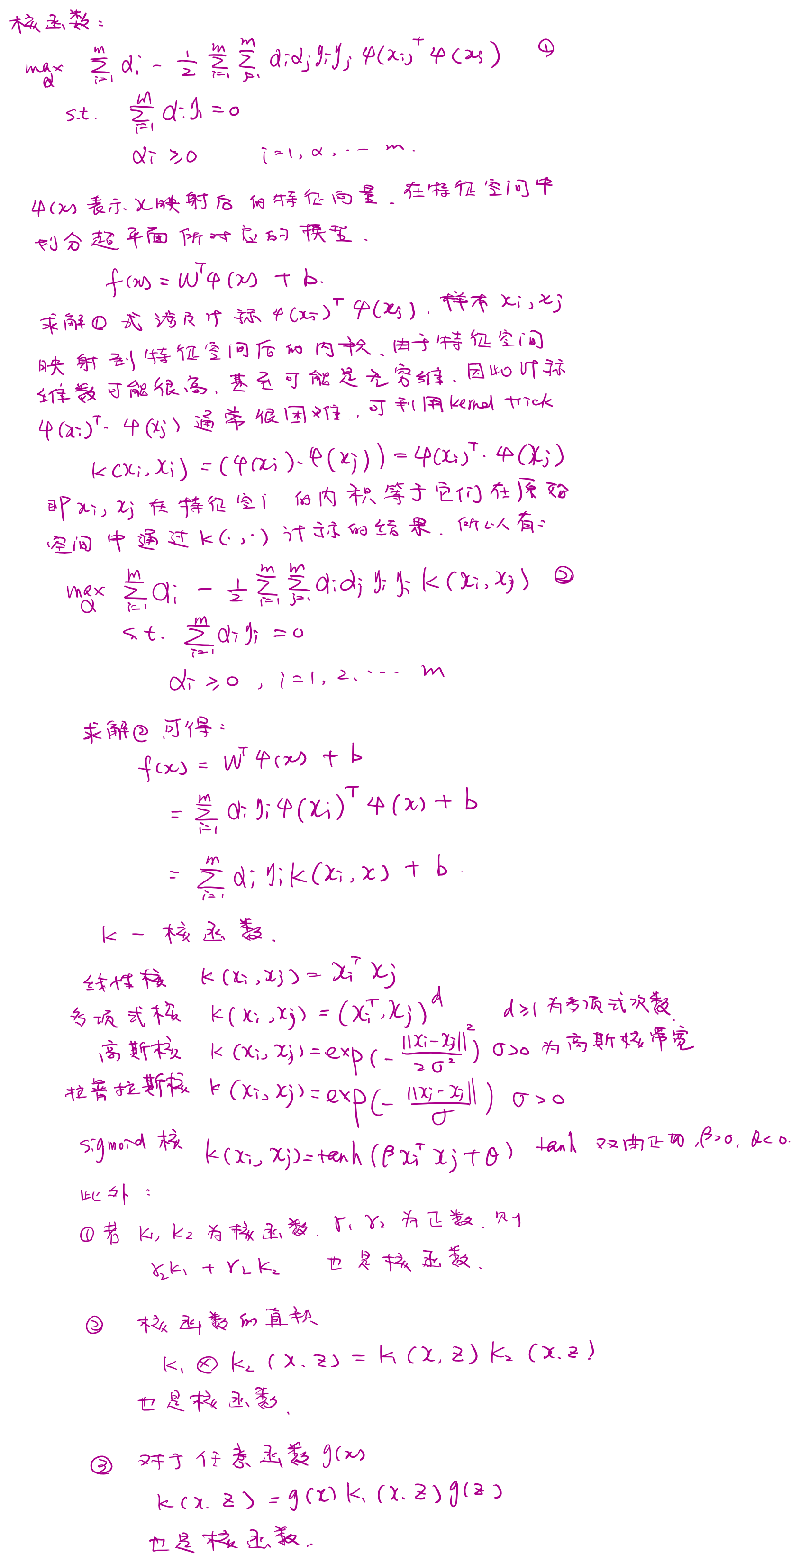 核函数：
max_α Σ_{i=1}^{m} α_i - 1/2 Σ_{i=1}^{m} Σ_{j=1}^{m} α_i α_j y_i y_j φ(x_i)^T φ(x_j) ①
s.t. Σ_{i=1}^{m} α_i y_i = 0
α_i ≥ 0 i=1, 2, ... m.
φ(x) 表示 x 映射后的特征向量. 在特征空间中
划分超平面所对应的模型.
f(x) = W^T φ(x) + b.
求解①式涉及计算 φ(x_i)^T φ(x_j), 样本 x_i, x_j
映射到特征空间后的内积. 由于特征空间
维数可能很高, 甚至可能是无穷维. 因此计算
φ(x_i)^T · φ(x_j) 通常很困难, 可利用 kernel trick
k(x_i, x_j) = (φ(x_i) · φ(x_j)) = φ(x_i)^T · φ(x_j)
即 x_i, x_j 在特征空间的内积等于它们在原始
空间中通过 k(·,·) 计算的结果. 所以有:
max_α Σ_{i=1}^{m} α_i - 1/2 Σ_{i=1}^{m} Σ_{j=1}^{m} α_i α_j y_i y_j k(x_i, x_j) ②
s.t. Σ_{i=1}^{m} α_i y_i = 0
α_i ≥ 0, i=1, 2, ... m
求解② 可得:
f(x) = W^T φ(x) + b
= Σ_{i=1}^{m} α_i y_i φ(x_i)^T φ(x) + b
= Σ_{i=1}^{m} α_i y_i k(x_i, x) + b.
k - 核函数.
线性核 k(x_i, x_j) = x_i^T x_j
多项式核 k(x_i, x_j) = (x_i^T x_j)^d d≥1 为多项式次数.
高斯核 k(x_i, x_j) = exp(- ||x_i-x_j||^2 / 2σ^2) σ>0 为高斯核带宽
拉普拉斯核 k(x_i, x_j) = exp(- ||x_i-x_j|| / σ) σ>0
sigmoid 核 k(x_i, x_j) = tanh(β x_i^T x_j + θ) tanh 双曲正切, β>0, θ<0.
此外:
①若 k_1, k_2 为核函数. γ_1 γ_2 为正数. 则
γ_2 k_1 + γ_2 k_2 也是核函数.
② 核函数的直积
k_1 ⊗ k_2 (x, z) = k_1(x, z) k_2(x, z)
也是核函数.
③ 对于任意函数 g(x)
k(x, z) = g(x) k_1(x, z) g(z)
也是核函数.